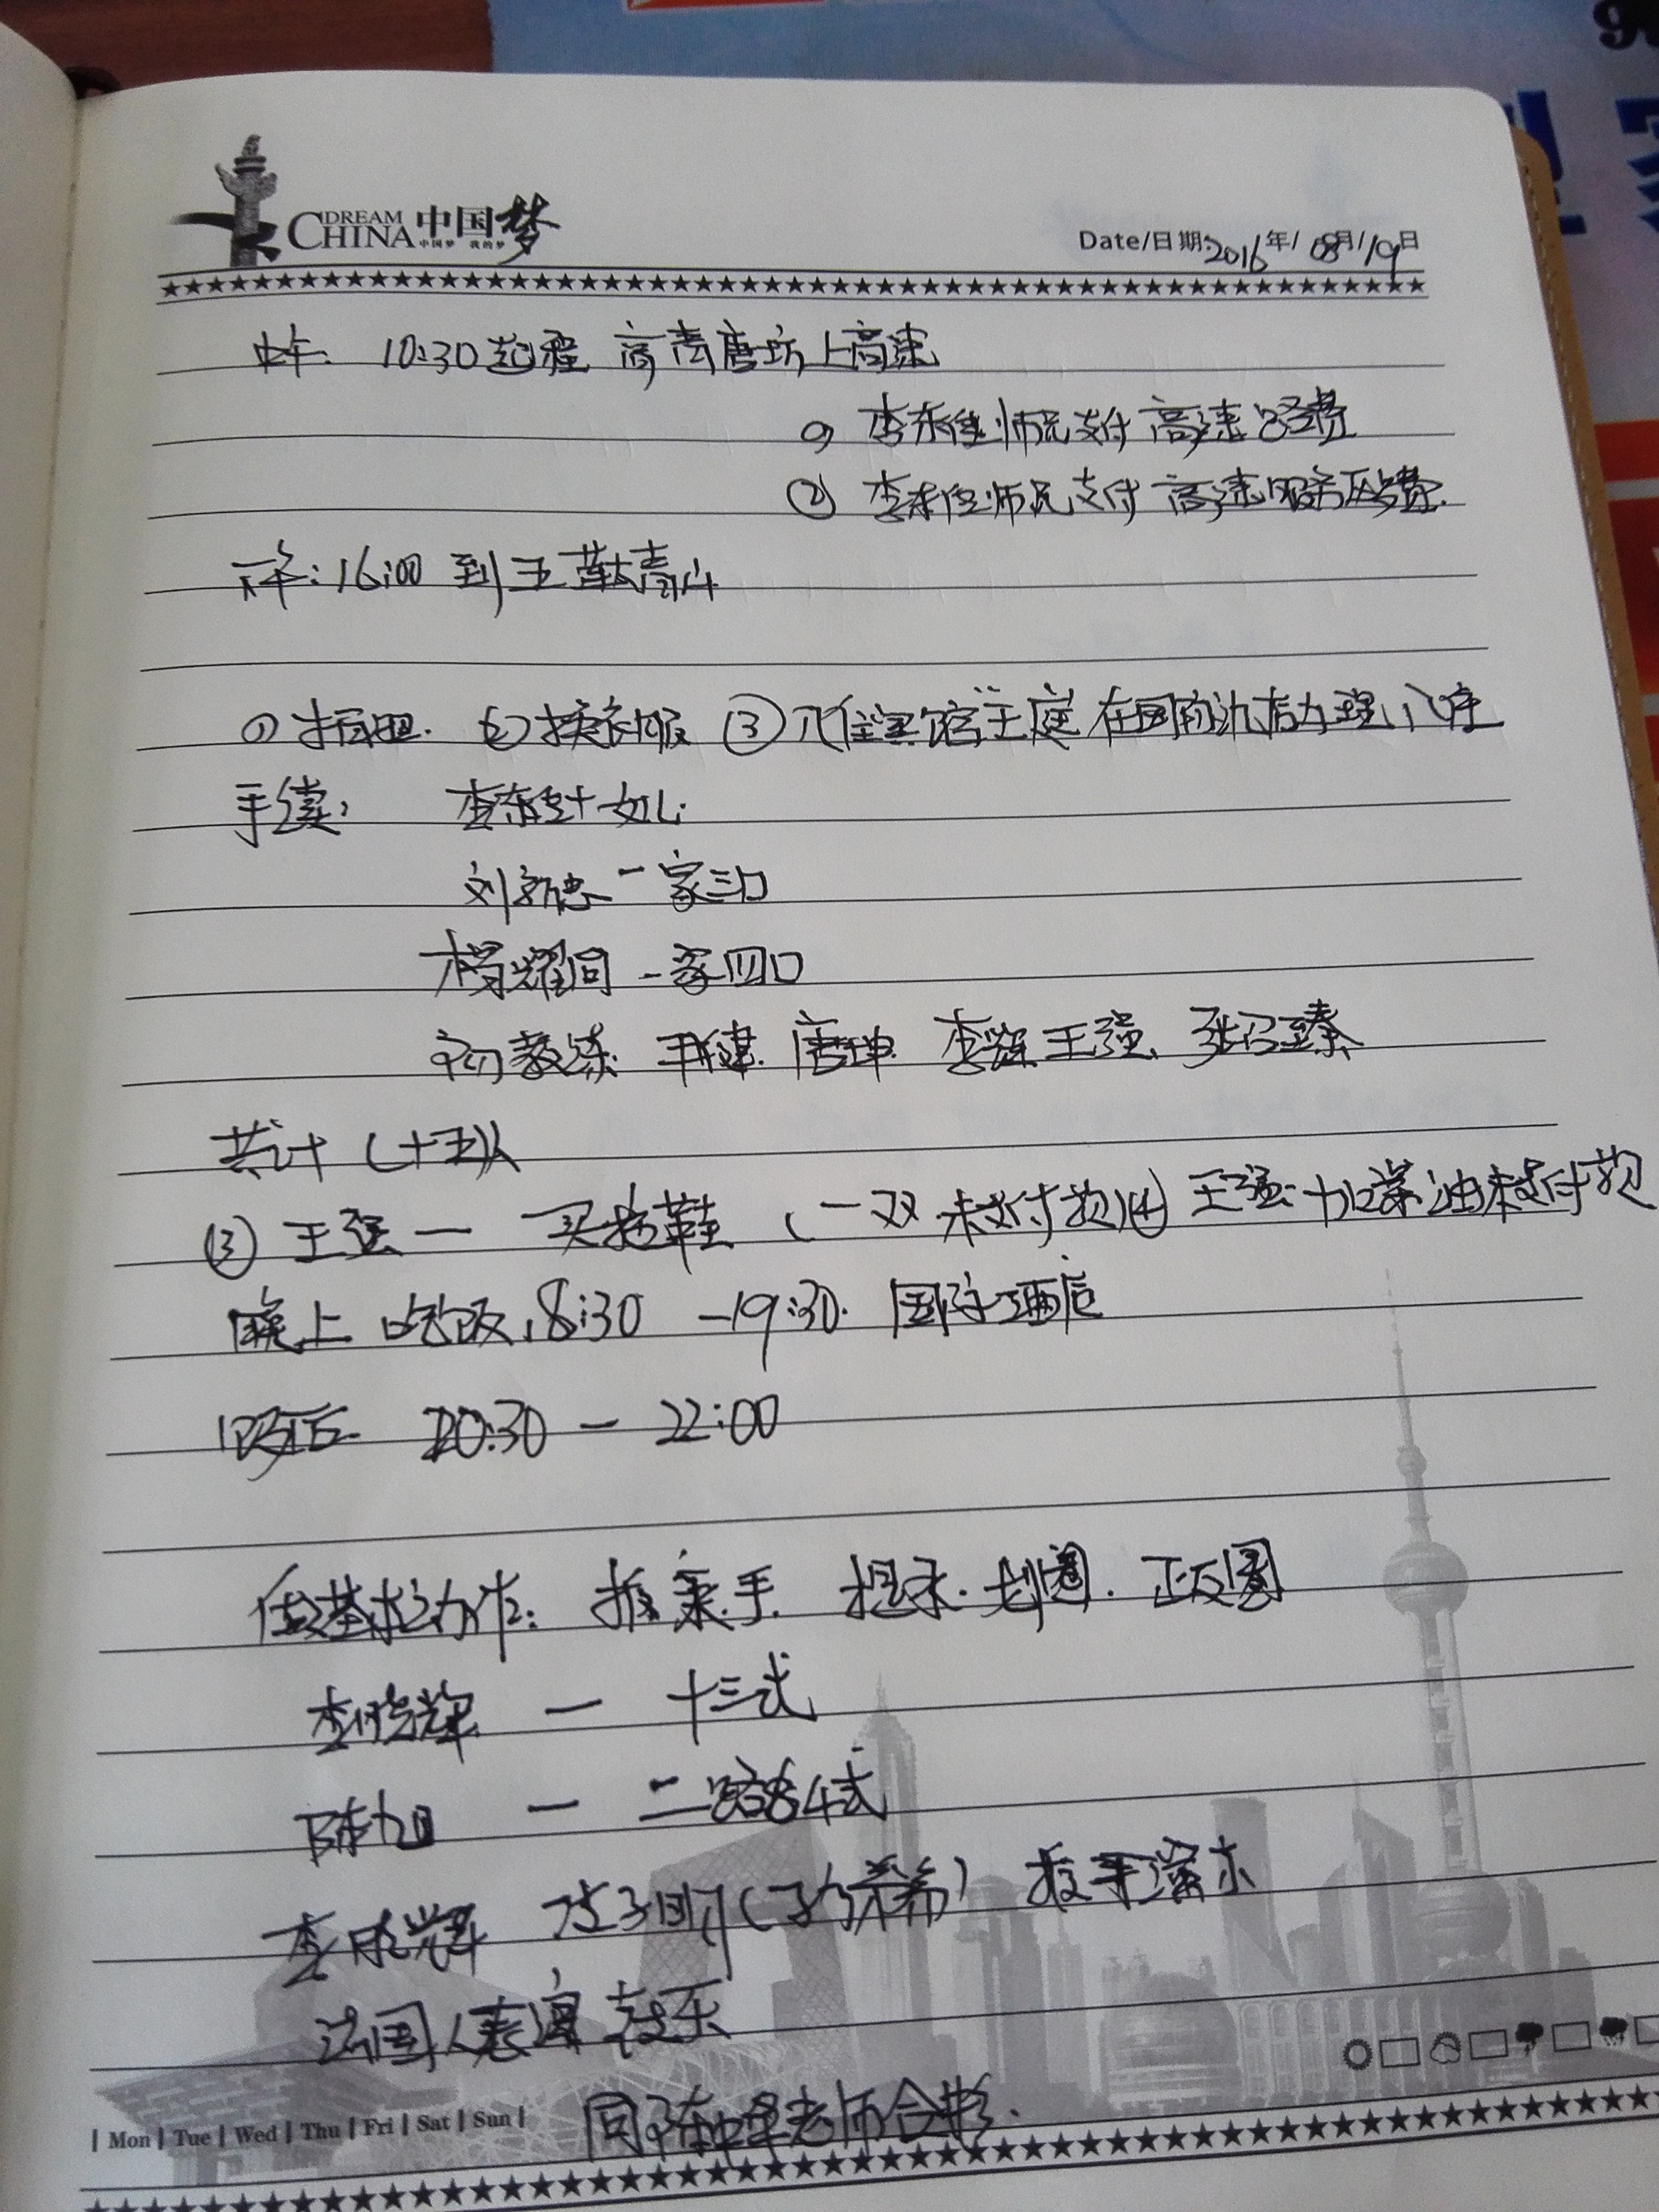 DREAM CHINA 中国梦
中国梦 我的梦
Date/日期: 2016年/08月/19日
10:30起程 高青唐坊上高速
① 李东佳师兄支付高速路费
② 李东佳师兄支付高速服务区费.
下午: 16:00 到王
① 拍照. ② 换衣服 ③ 入住宾馆王庭 在国际酒店办理入住
手续, 李东 + 女儿.
刘新忠一家三口
杨耀同 一家四口
教练. 唐坤. 李辉 王强、张召臻
共计(十五)人
(3) 王强一 买拖鞋 (一双.未支付款) (4) 王强. 加柴油未支付款
晚上 吃饭18:30 —19:30. 国际酒店
饭后 20:30 — 22:00
做基本动作: 掤手. 划圈. 正反圈
李晓辉 — 十三式
陈旭 — 二路84式
李晓辉 推手演示
法国人表演 音乐
同陈中华老师合影.
| Mon | Tue | Wed | Thu | Fri | Sat | Sun |